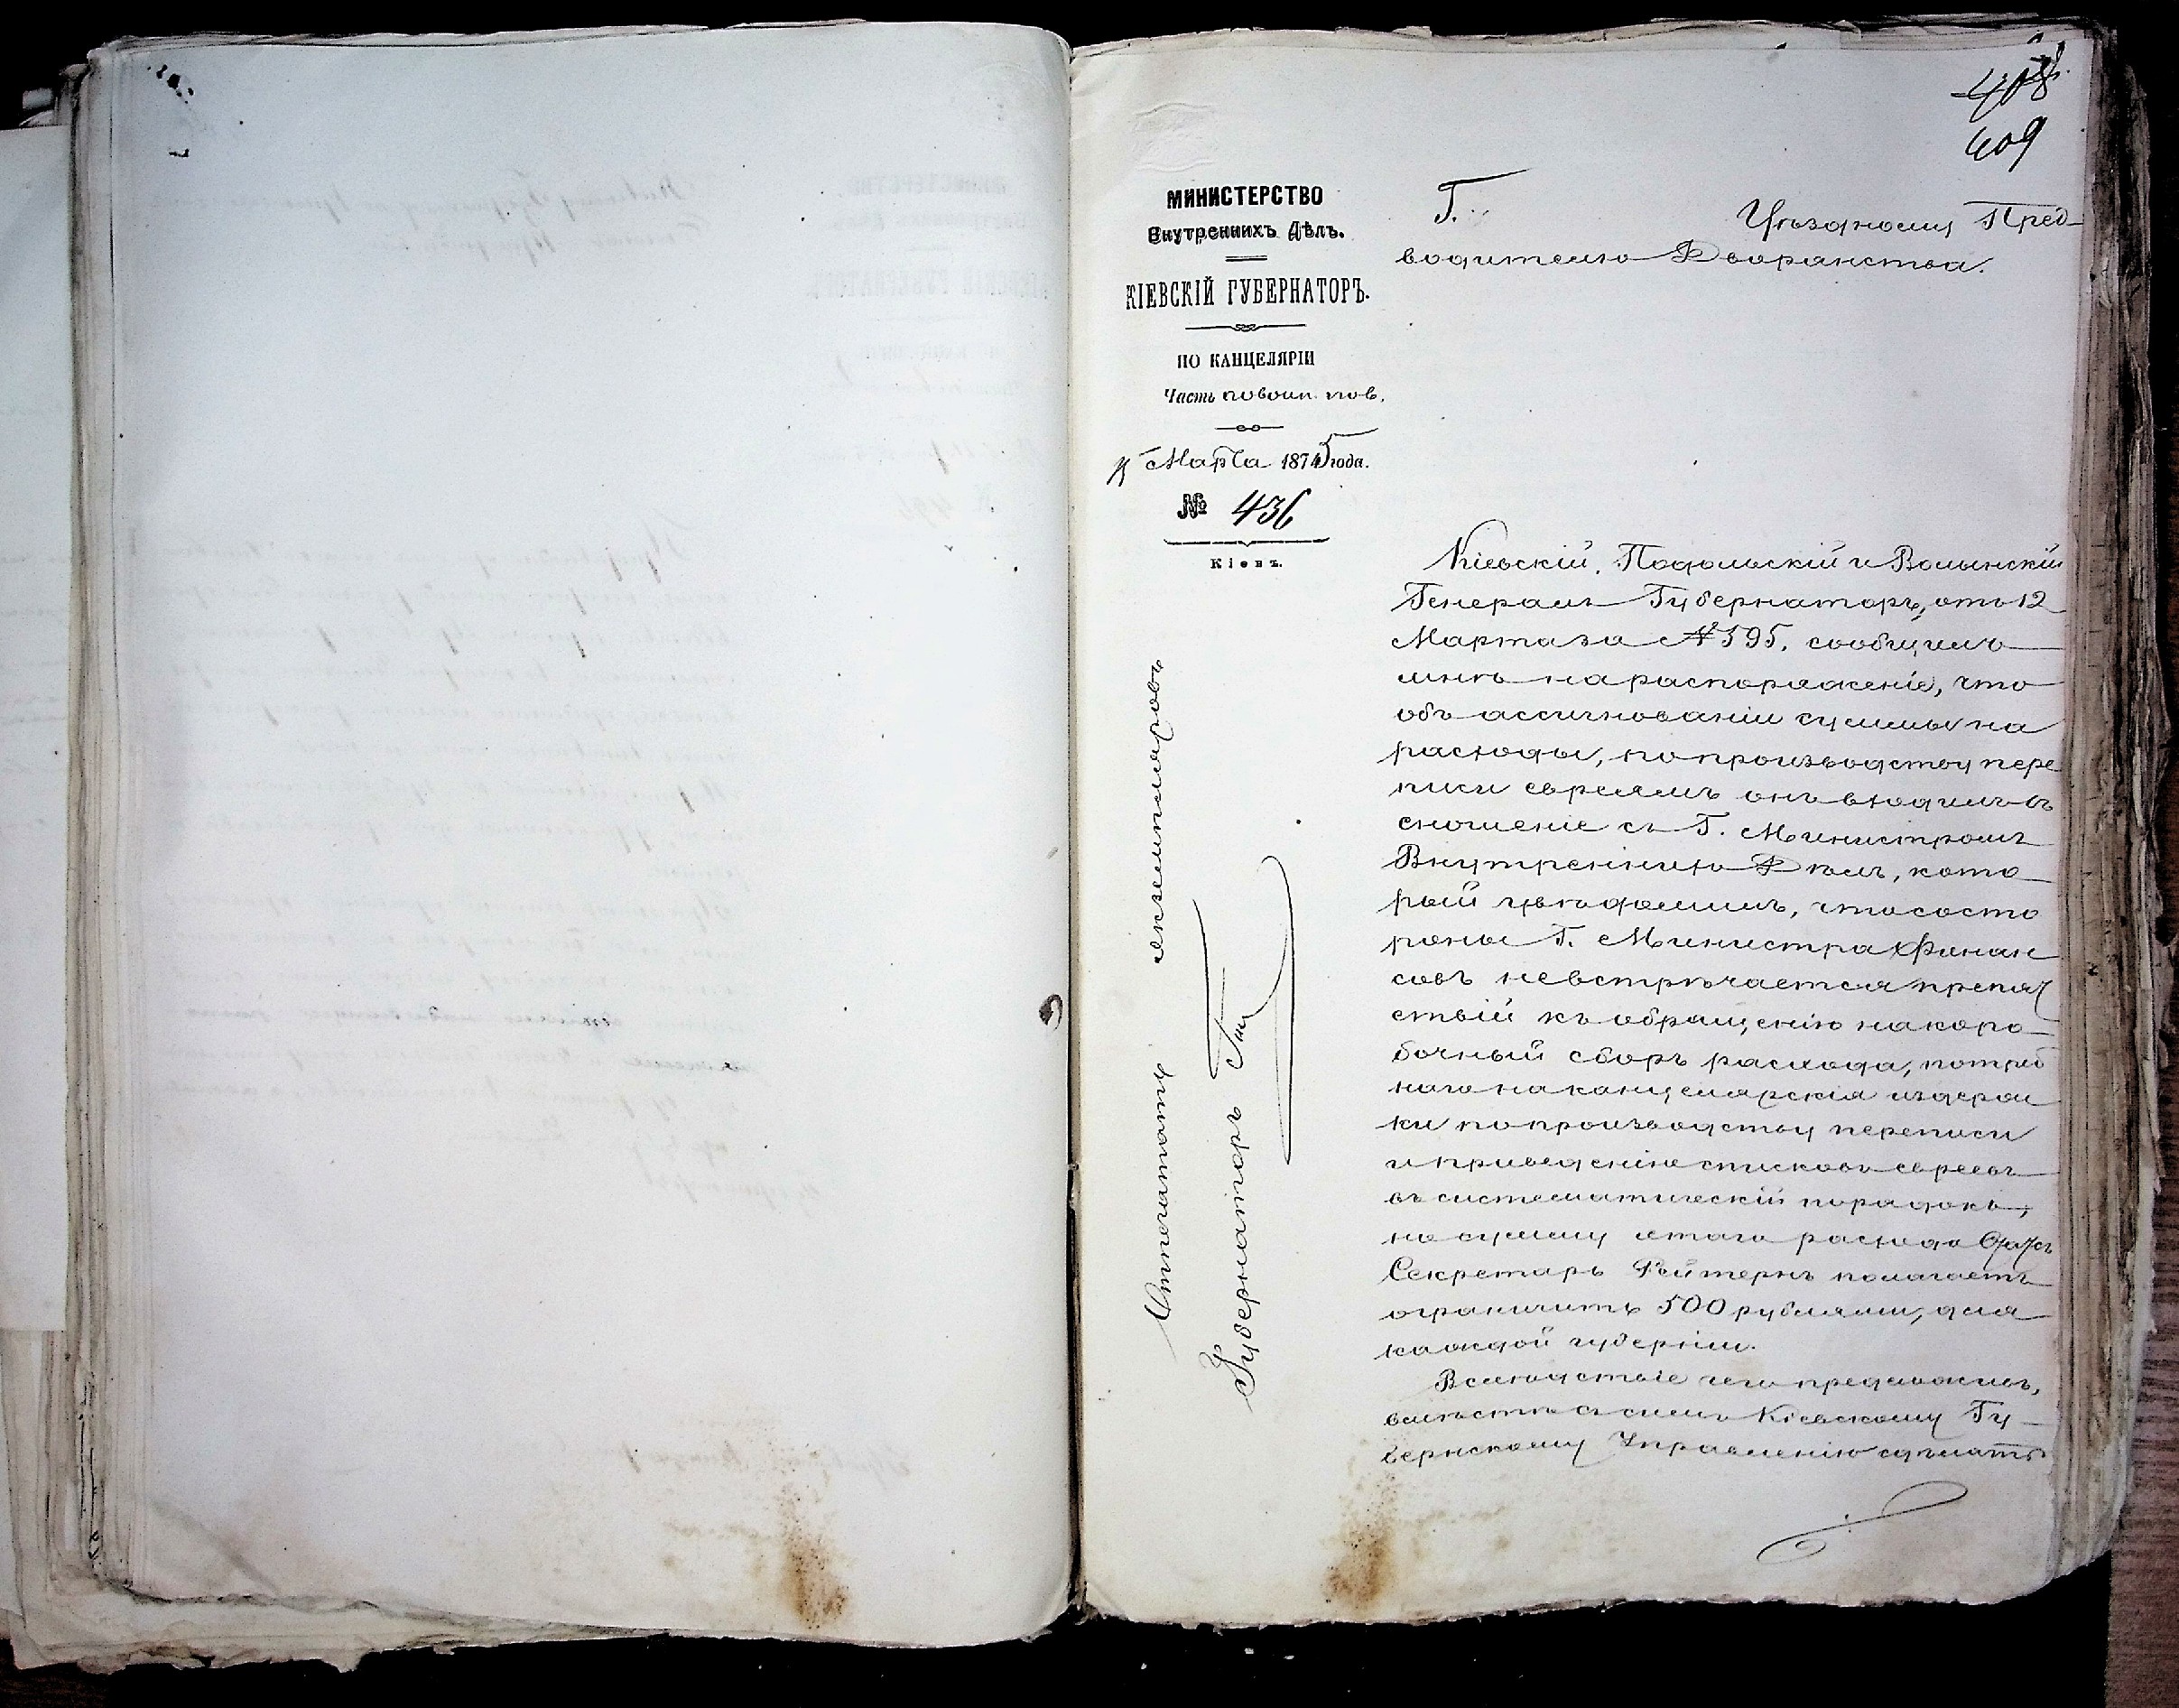 408
409
МИНИСТЕРСТВО
Внутреннихъ Дѣлъ.
КІЕВСКІЙ ГУБЕРНАТОРЪ.
ПО КАНЦЕЛЯРІИ
Часть по воин. пов.
Марта 1875 года.
№ 436
Кіевъ.
Г. Уѣздному Пред-
водителю Дворянства.
Кіевскій, Подольскій и Волынскій
Генералъ Губернаторъ, отъ 12
Марта за № 595, сообщилъ
мнѣ на распоряженіе, что
объ ассигнованіи суммы на
расходы, по производству пере
писи евреямъ онъ входилъ въ
сношеніе съ Г. Министромъ
Внутреннихъ Дѣлъ, кото-
рый увѣдомилъ, что со сто
роны Г. Министра Финан
совъ невстрѣчается препят
ствій къ обращенію на коро-
бочный сборъ расхода, потреб
наго на канцелярскія издерж
ки по производству переписи
и приведенію списковъ евреевъ
въ систематическій порядокъ,
но сумму этаго расхода Статсъ
Секретарь Рейтернъ полагаетъ
ограничить 500 рублями, для
каждой губерніи.
Вслѣдствіе чего предложивъ,
вмѣстѣ съ симъ Кіевскому Гу-
бернскому Управленію сдѣлать
Отпечатать экземпляровъ
Губернаторъ